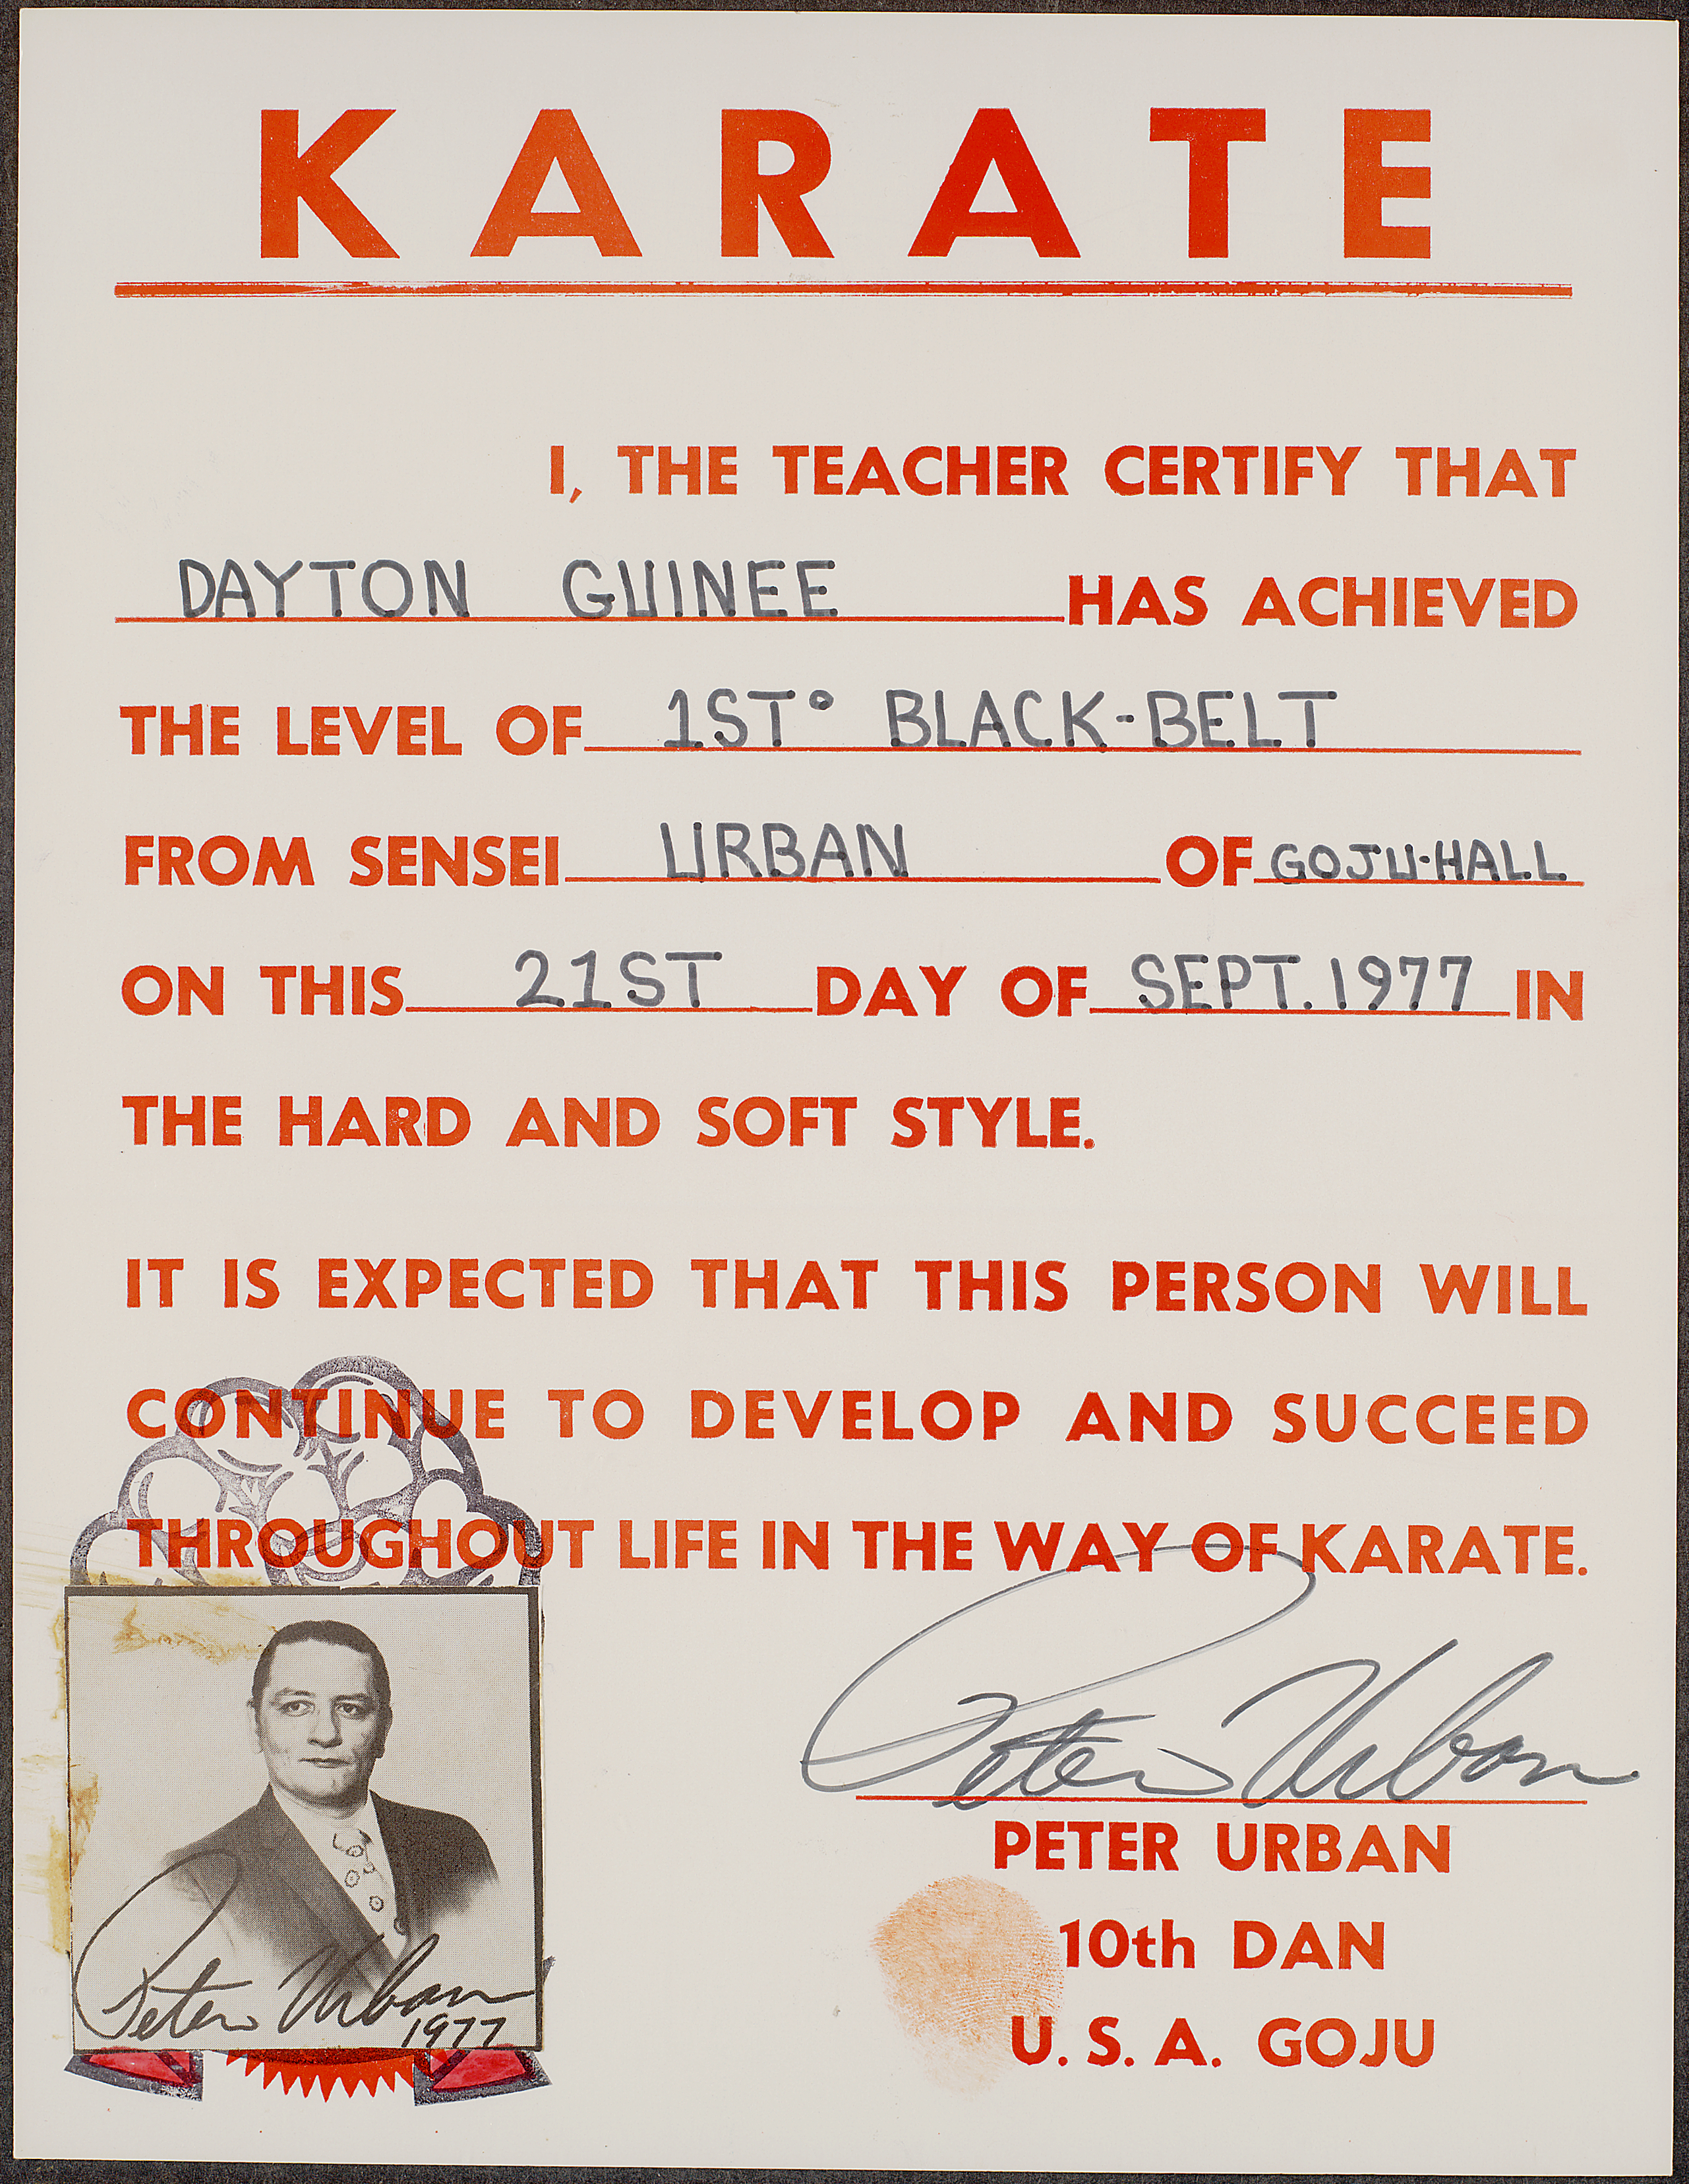 KARATE
I, THE TEACHER CERTIFY THAT
DAYTON GUINEE HAS ACHIEVED
THE LEVEL OF 1ST° BLACK-BELT
FROM SENSEI URBAN OF GOJU-HALL
ON THIS 21ST DAY OF SEPT. 1977 IN
THE HARD AND SOFT STYLE.
IT IS EXPECTED THAT THIS PERSON WILL
CONTINUE TO DEVELOP AND SUCCEED
THROUGHOUT LIFE IN THE WAY OF KARATE.
Peter Urban
PETER URBAN
10th DAN
U. S. A. GOJU
Peter Urban
1977